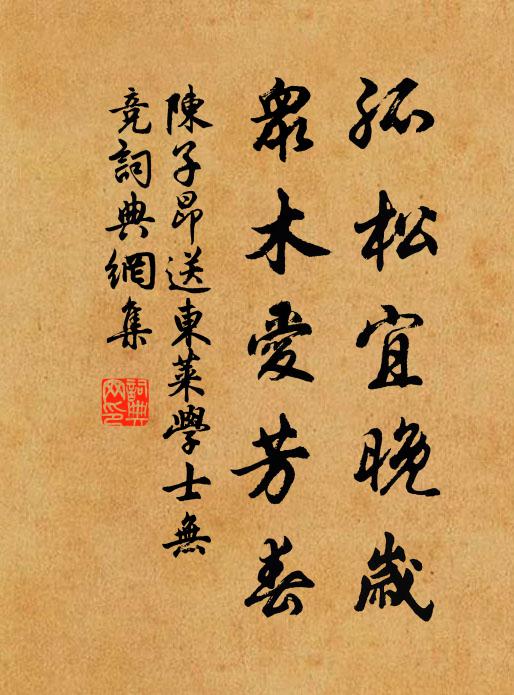 孤松宜晚歲
衆木愛芳春
陳子昂送東萊學士無
竞詞典網集
詞典
网印